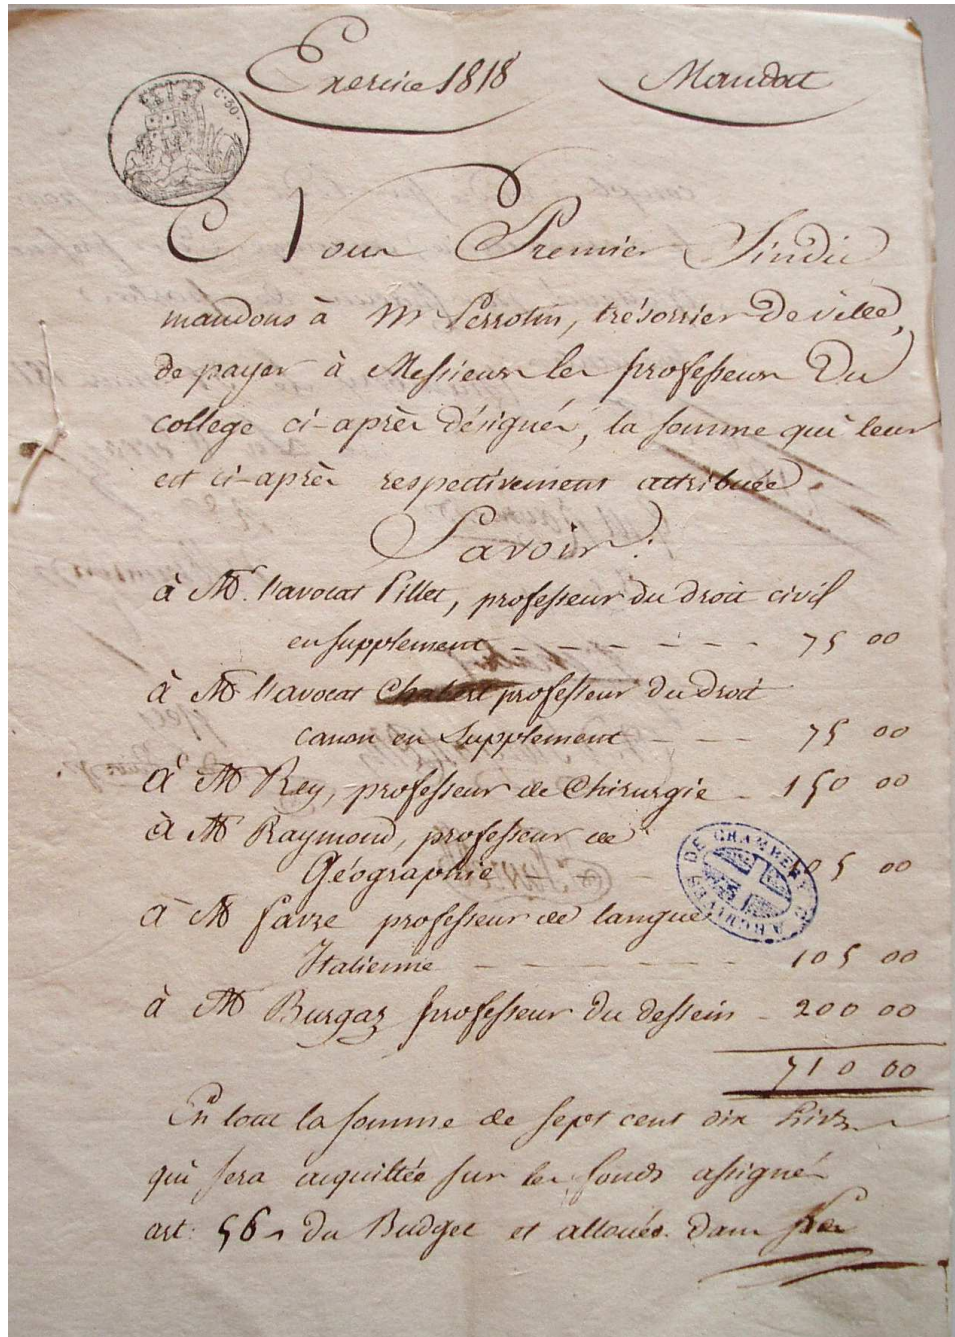 C. 30.
Exercice 1818 Mandat
Nous Premier Sindic
mandons à Mr Perrotin, trésorier de ville,
de payer à Messieurs les professeurs du
college ci-après désignés, la somme qui leur
est ci-après respectivement attribuée
Savoir:
à Mr. l'avocat Pillet, professeur du droit civil
en supplement - - - - - - 75 00
à Mr l'avocat Chabert professeur du droit
canon en Supplement - - - 75 00
à Mr Rey, professeur de Chirurgie - 150 00
à Mr Raymond, professeur de
Géographie - - 105 00
DE CHAMBERY
ARCHIVES
à Mr favre professeur de langue
Italienne - - - - - 105 00
à Mr Burgaz professeur du dessein - 200 00
710 00
En tout la somme de sept cent dix livres
qui sera acquittée sur les fonds assignés
art: 56 du Budget et alloués dans